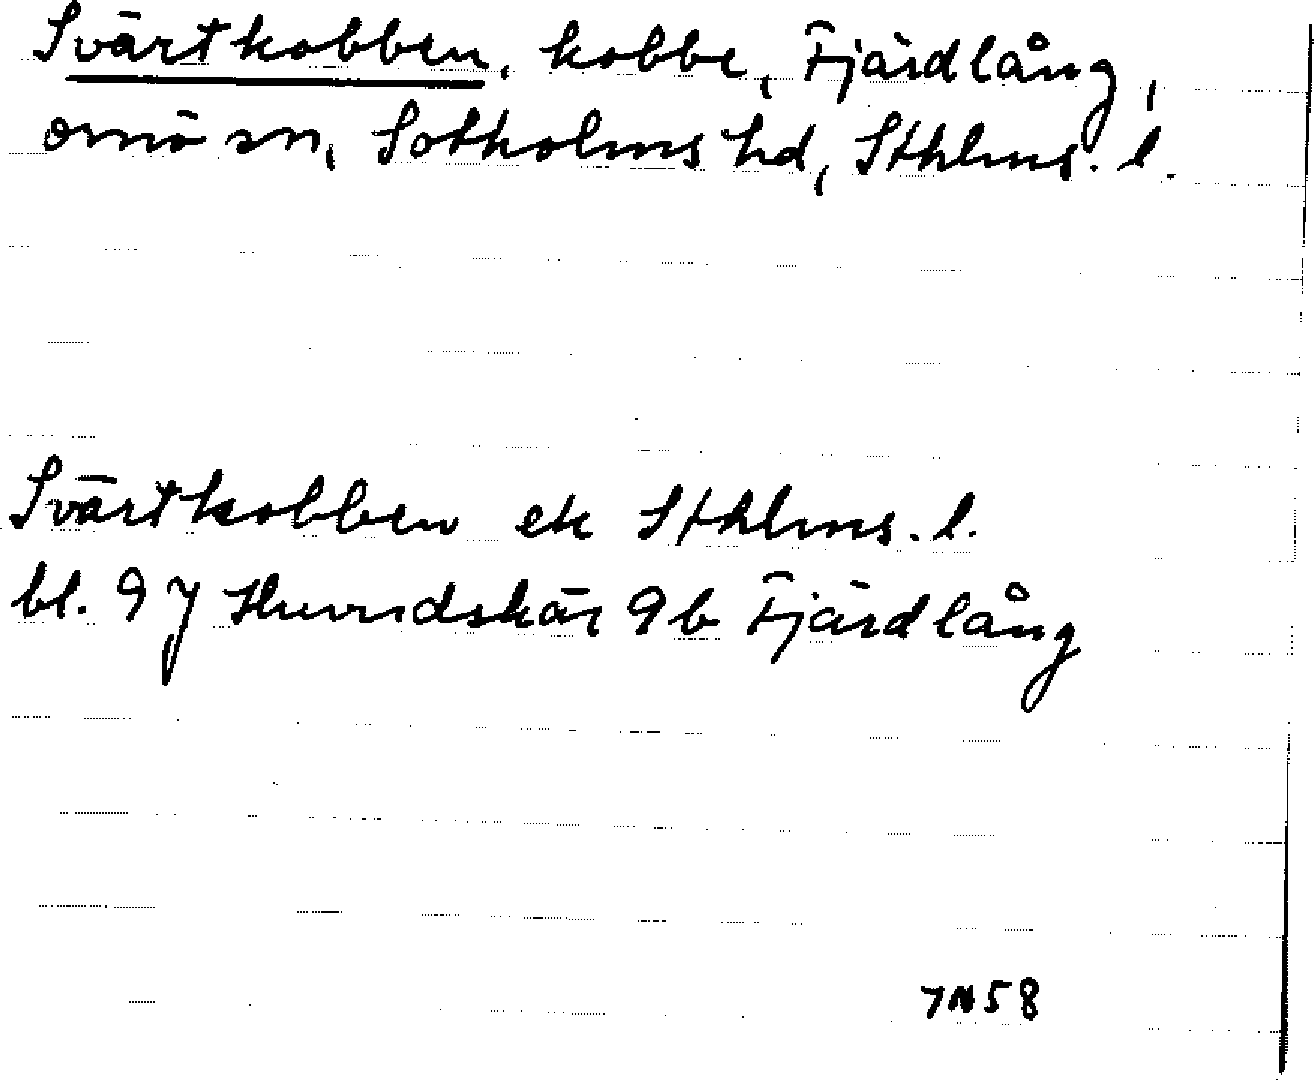 Svärtkobben, kobbe, Fjärdlång,
Ornö sn, Sotholms hd, Sthlms. l.
Svärtkobben ek Sthlms. l.
bl. 9 J Huvudskär 9b Fjärdlång
58